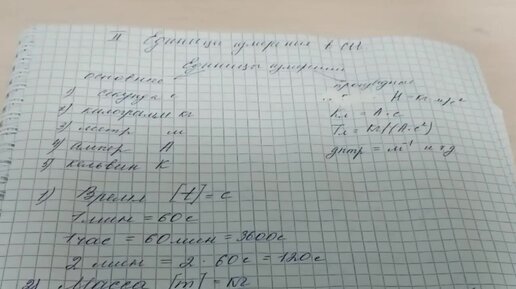 II Единицы измерения в СИ
Единицы измерения
основные
производные
1) секунда с
Н = кг·м/с²
2) килограмм кг
Кл = А·с
3) метр м
Тл = Кг/(А·с²)
4) Ампер А
дптр = м⁻¹ и тд
5) Кельвин К
1) Время [t] = с
1 мин = 60с
1 час = 60 мин = 3600с
2 мин = 2 · 60с = 120с
2) Масса [m] = кг